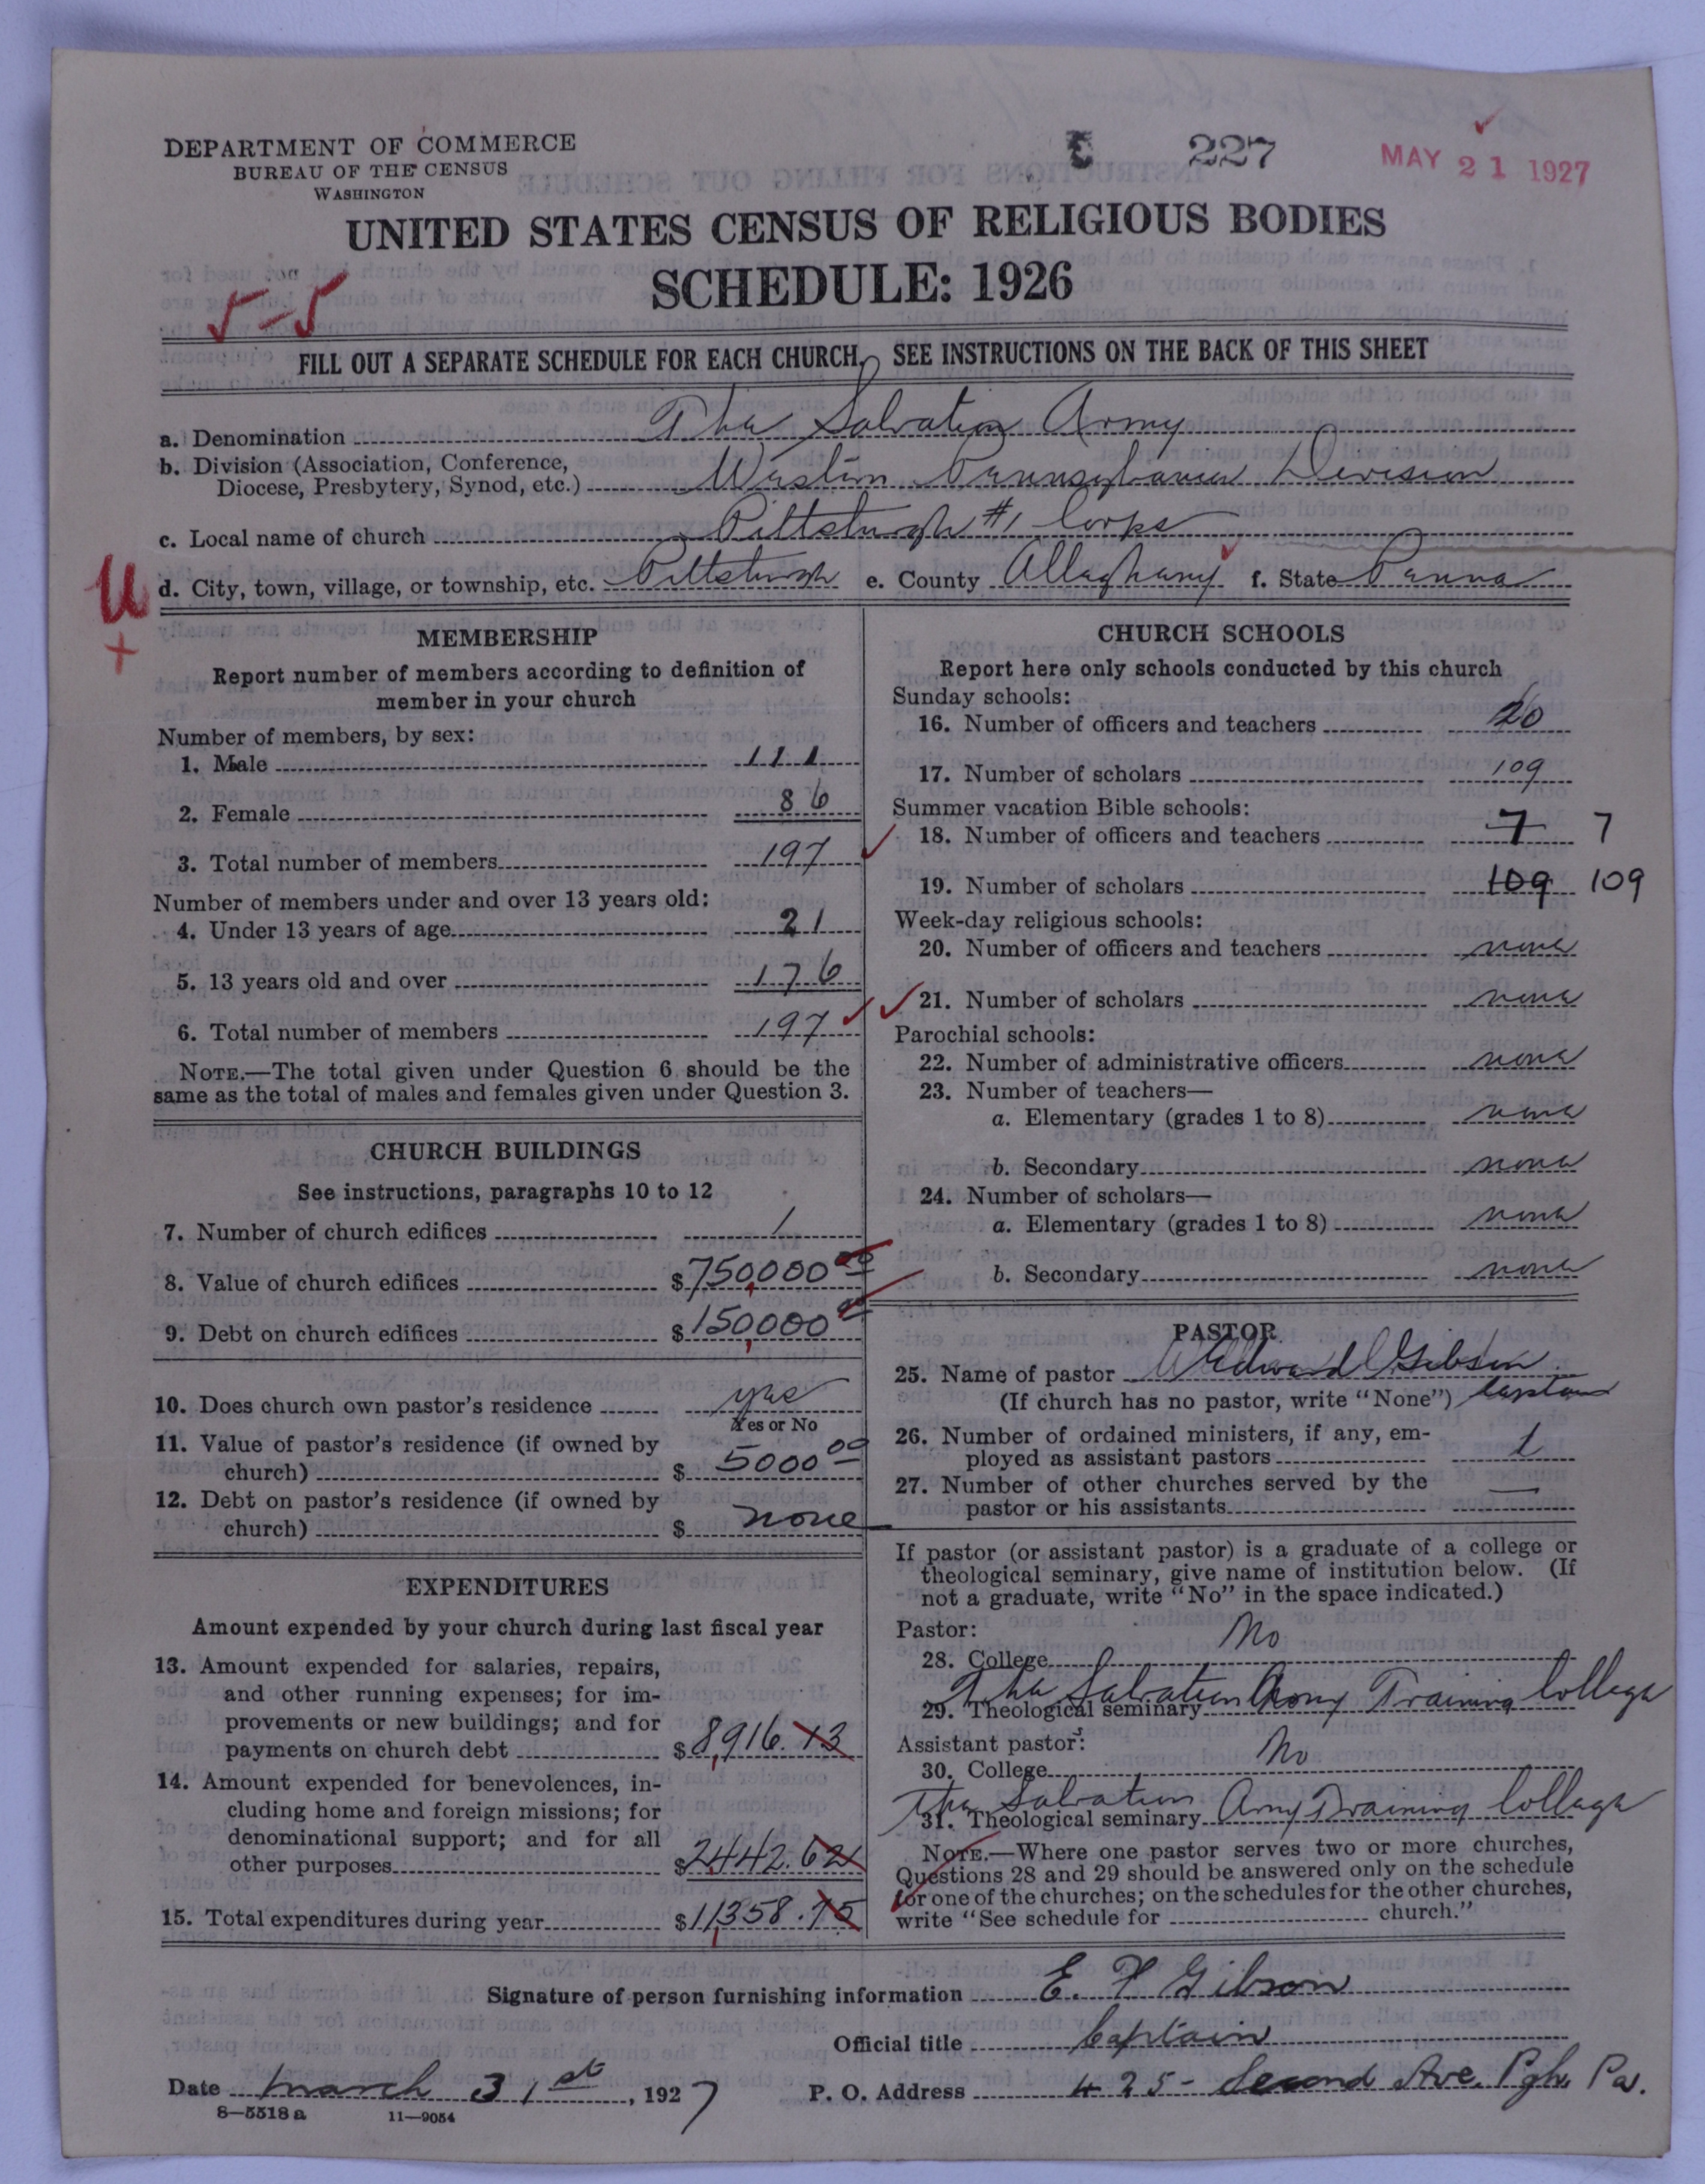 DEPARTMENT OF COMMERCE
BUREAU OF THE CENSUS
WASHINGTON
227
MAY 21 1927
UNITED STATES CENSUS OF RELIGIOUS BODIES
SCHEDULE: 1926
5-5
FILL OUT A SEPARATE SCHEDULE FOR EACH CHURCH, SEE INSTRUCTIONS ON THE BACK OF THIS SHEET
a. Denomination The Salvation Army
b. Division (Association, Conference,
Diocese, Presbytery, Synod, etc.) Western Pennsylvania Division
c. Local name of church Pittsburgh #1 Corps
U
d. City, town, village, or township, etc. Pittsburgh e. County Allegheny f. State Penna
+
MEMBERSHIP
Report number of members according to definition of
member in your church
Number of members, by sex:
1. Male 111
2. Female 86
3. Total number of members 197
Number of members under and over 13 years old:
4. Under 13 years of age 21
5. 13 years old and over 176
6. Total number of members 197
NOTE.—The total given under Question 6 should be the
same as the total of males and females given under Question 3.
CHURCH BUILDINGS
See instructions, paragraphs 10 to 12
7. Number of church edifices 1
8. Value of church edifices $750,000 00
9. Debt on church edifices $150,000 00
10. Does church own pastor's residence yes
Yes or No
11. Value of pastor's residence (if owned by
church) $ 5000 00
12. Debt on pastor's residence (if owned by
church) $ none
EXPENDITURES
Amount expended by your church during last fiscal year
13. Amount expended for salaries, repairs,
and other running expenses; for im-
provements or new buildings; and for
payments on church debt $8,916.13
14. Amount expended for benevolences, in-
cluding home and foreign missions; for
denominational support; and for all
other purposes $2,442.62
15. Total expenditures during year $11,358.75
CHURCH SCHOOLS
Report here only schools conducted by this church
Sunday schools:
16. Number of officers and teachers 20
17. Number of scholars 109
Summer vacation Bible schools:
18. Number of officers and teachers 7 7
19. Number of scholars 109 109
Week-day religious schools:
20. Number of officers and teachers none
21. Number of scholars none
Parochial schools:
22. Number of administrative officers none
23. Number of teachers—
a. Elementary (grades 1 to 8) none
b. Secondary none
24. Number of scholars—
a. Elementary (grades 1 to 8) none
b. Secondary none
PASTOR
25. Name of pastor Edward Gibson
(If church has no pastor, write "None") Captain
26. Number of ordained ministers, if any, em-
ployed as assistant pastors 1
27. Number of other churches served by the
pastor or his assistants —
If pastor (or assistant pastor) is a graduate of a college or
theological seminary, give name of institution below. (If
not a graduate, write "No" in the space indicated.)
Pastor:
28. College No
29. Theological seminary The Salvation Army Training College
Assistant pastor:
30. College No
31. Theological seminary The Salvation Army Training College
NOTE.—Where one pastor serves two or more churches,
Questions 28 and 29 should be answered only on the schedule
for one of the churches; on the schedules for the other churches,
write "See schedule for church."
Signature of person furnishing information E. Gibson
Official title Captain
Date March 31st, 1927 P. O. Address 425- Second Ave. Pgh, Pa.
8—5518 a 11—9054